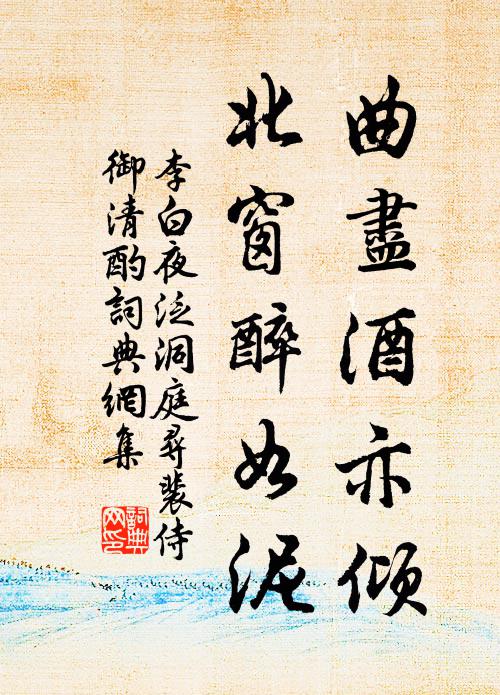 曲盡酒亦傾
北窗醉如泥
李白夜泛洞庭尋裴侍
御清酌詞典網集
詞典
网印